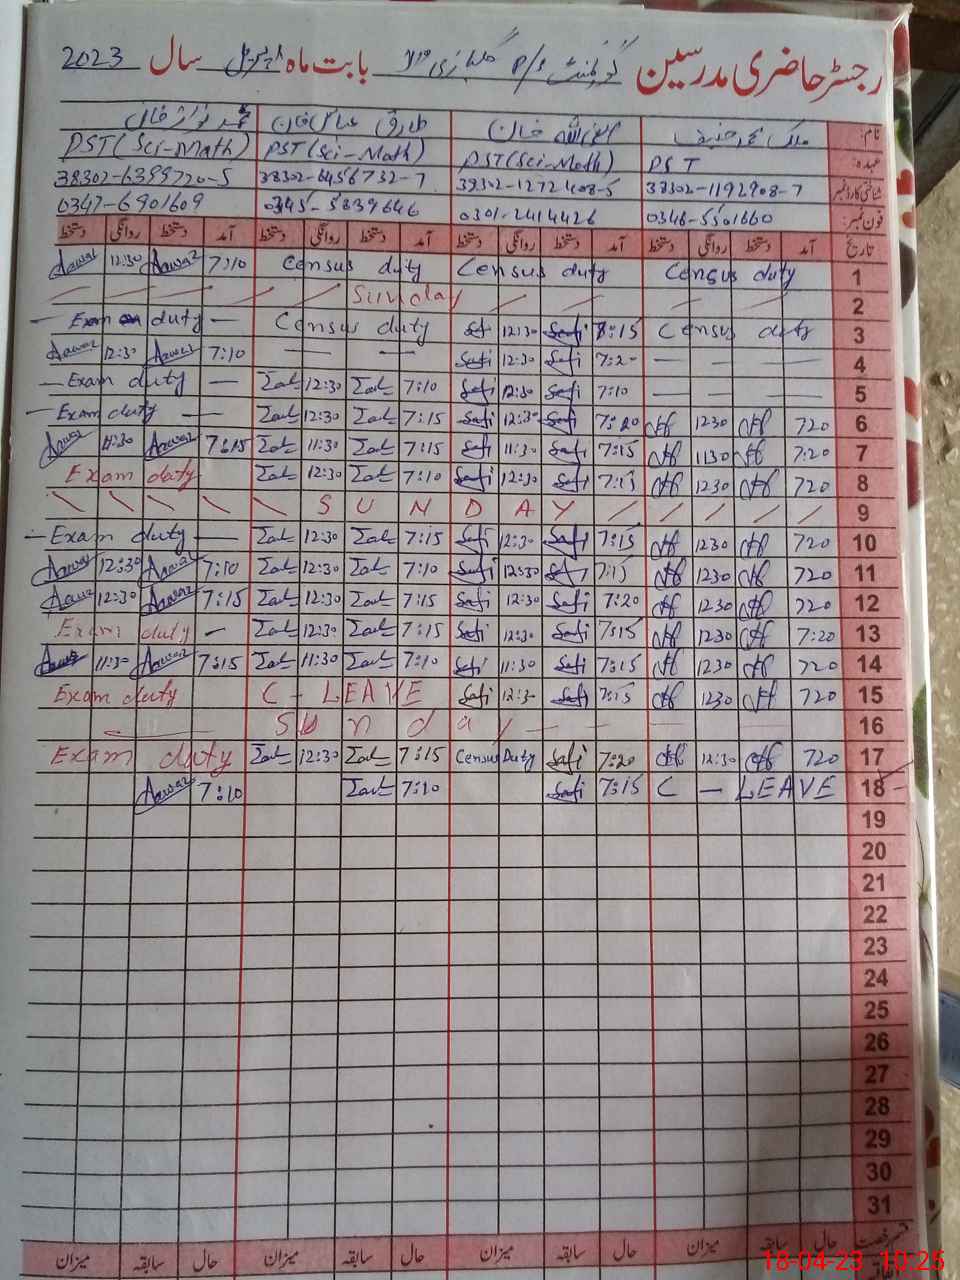 رجسٹر حاضری مدرسین گورنمنٹ P/S بابت ماہ اپریل سال 2023
نام: ملک محمد حنیف خان طارق عباس خان محمد نواز خان
عہدہ: PST PST (Sci-Math) PST (Sci-Math) PST (Sci-Math)
شناختی کارڈ نمبر 38302-1192908-7 38302-1272408-5 38302-6456732-7 38302-6399720-5
فون نمبر: 0346-5501660 0301-2414426 0345-5839646 0347-6901609
تاریخ آمد دستخط روانگی دستخط آمد دستخط روانگی دستخط آمد دستخط روانگی دستخط آمد دستخط روانگی دستخط
1 Census duty Census duty Census duty 7:10 Nawaz 12:30 Nawaz
2 Sunday
3 Census duty 8:15 Safi 12:30 Safi Census duty Exam duty
4 — — 7:20 Safi 12:30 Safi — — 7:10 Nawaz 12:30 Nawaz
5 — — 7:10 Safi 12:30 Safi 7:10 12:30 Exam duty
6 720 1230 7:20 Safi 12:30 Safi 7:15 12:30 Exam duty
7 7:20 1130 7:15 Safi 11:30 Safi 7:15 11:30 7:15 Nawaz 11:30 Nawaz
8 720 1230 7:15 Safi 12:30 Safi 7:10 12:30 Exam duty
9 SUNDAY
10 720 1230 7:15 Safi 12:30 Safi 7:15 12:30 Exam duty
11 720 1230 7:15 Safi 12:30 Safi 7:10 12:30 7:10 Nawaz 12:30 Nawaz
12 720 1230 7:20 Safi 12:30 Safi 7:15 12:30 7:15 Nawaz 12:30 Nawaz
13 7:20 1230 7:15 Safi 12:30 Safi 7:15 12:30 Exam duty
14 720 1230 7:15 Safi 11:30 Safi 7:10 11:30 7:15 Nawaz 11:30 Nawaz
15 720 1230 7:15 Safi 12:30 Safi C - LEAVE Exam duty
16 Sunday
17 720 12:30 7:20 Safi Census Duty 7:15 12:30 Exam duty
18 C - LEAVE 7:15 Safi 7:10 7:10 Nawaz
19
20
21
22
23
24
25
26
27
28
29
30
31
حال سابقہ میزان حال سابقہ میزان حال سابقہ میزان حال سابقہ میزان
18-04-23 10:25